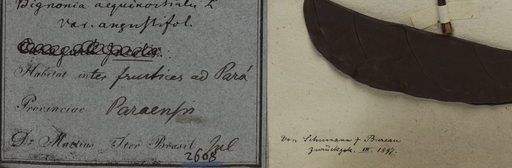 Bignonia aequinoctialis L
var. angustifol.
Habitat inter frutices ad Pará
Provinciae Paraensis
Dr. Martius Iter Brasil Jul
2668
von Schumann & Bureau
zurückgek. III. 1897.